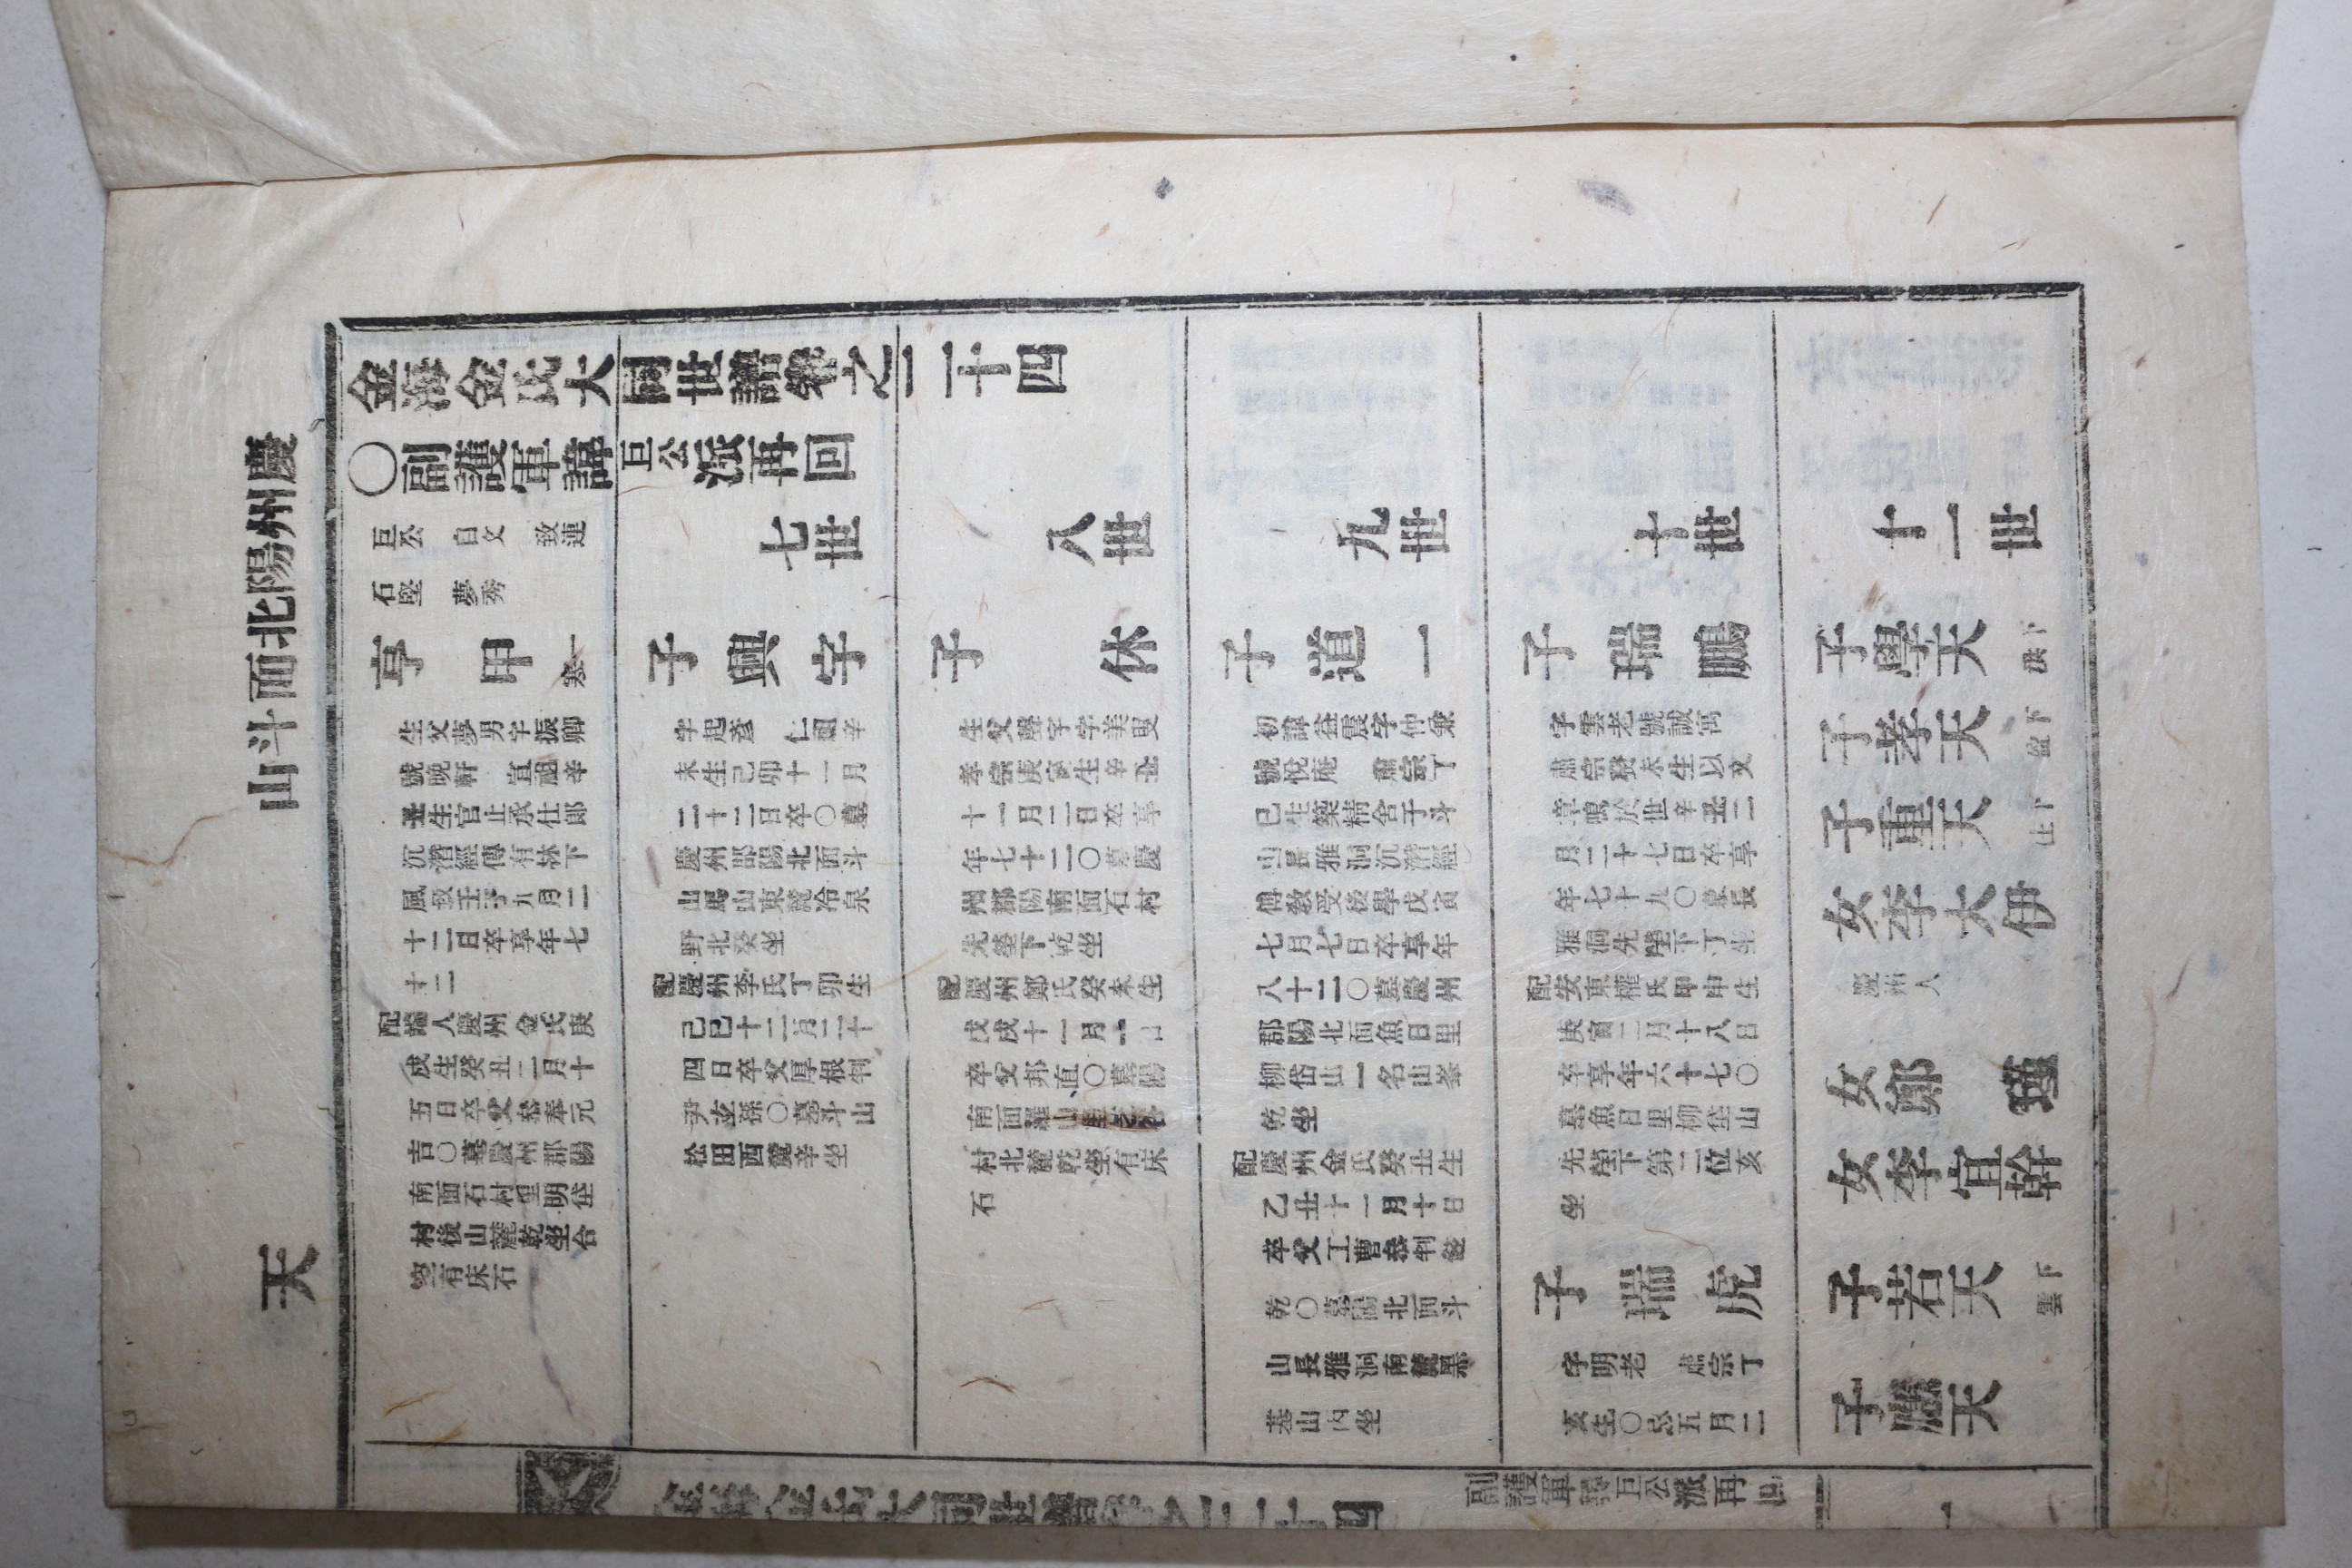 慶州陽北面斗山
天
金海金氏大同世譜卷之二十四
○副護軍諱巨公派再回
巨公 自文 致連
石堅 夢秀
七世
八世
九世
十世
十一世
亨甲
生父夢男字振卿
號晩軒 宣祖辛
丑生官止承仕郎
沉潛經傳有林下
風 壬子九月二
十二日卒享年七
十二
配端人慶州金氏庚
戌生癸丑二月十
五日卒父參奉元
吉○墓慶州郡陽
南面石村里明垈
村後山麓乾坐合
窆有床石
子興字
字起彦 仁祖辛
未生己卯十一月
二十二日卒○墓
慶州郡陽北面斗
山馬山東麓冷泉
野北癸坐
配慶州李氏丁卯生
己巳十二月二十
四日卒父厚根判
尹 孫○墓斗山
松田西麓辛坐
子休
生父 字字美叟
孝宗庚寅生辛丑
十一月二日卒享
年七十二○墓慶
州郡陽南面石村
先塋下乾坐
配慶州鄭氏癸未生
戊戌十一月十日
卒父邦直○墓陽
南面羅山里
村北麓乾坐有床
石
子道一
初諱益晨字仲兼
號悅庵 肅宗丁
巳生築精舍于斗
山長雅洞沉潛經
傳敎受後學戊寅
七月七日卒享年
八十二○墓慶州
郡陽北面魚日里
柳岱山一名山峯
乾坐
配慶州金氏癸丑生
乙丑十一月十日
卒父工曹參判
乾○墓陽北面斗
山長雅洞南麓黑
墓山內坐
子瑞鵬
字雲老號誠寓
肅宗癸未生以文
章鳴於世辛丑二
月二十七日卒享
年七十九○墓長
雅洞先塋下丁坐
配安東權氏甲申生
庚寅二月十八日
卒享年六十七○
墓魚日里柳岱山
先塋下第二位亥
坐
子瑞虎
字明老 肅宗丁
亥生○忌五月二
子學天 下洪
子孝天 下盈
子重天 下上
女李大伊
慶州人
女鄭瑾
女李宜幹
子若天 下雲
子應天
金海金氏大同世譜卷之二十四
副護軍諱巨公派再回
一